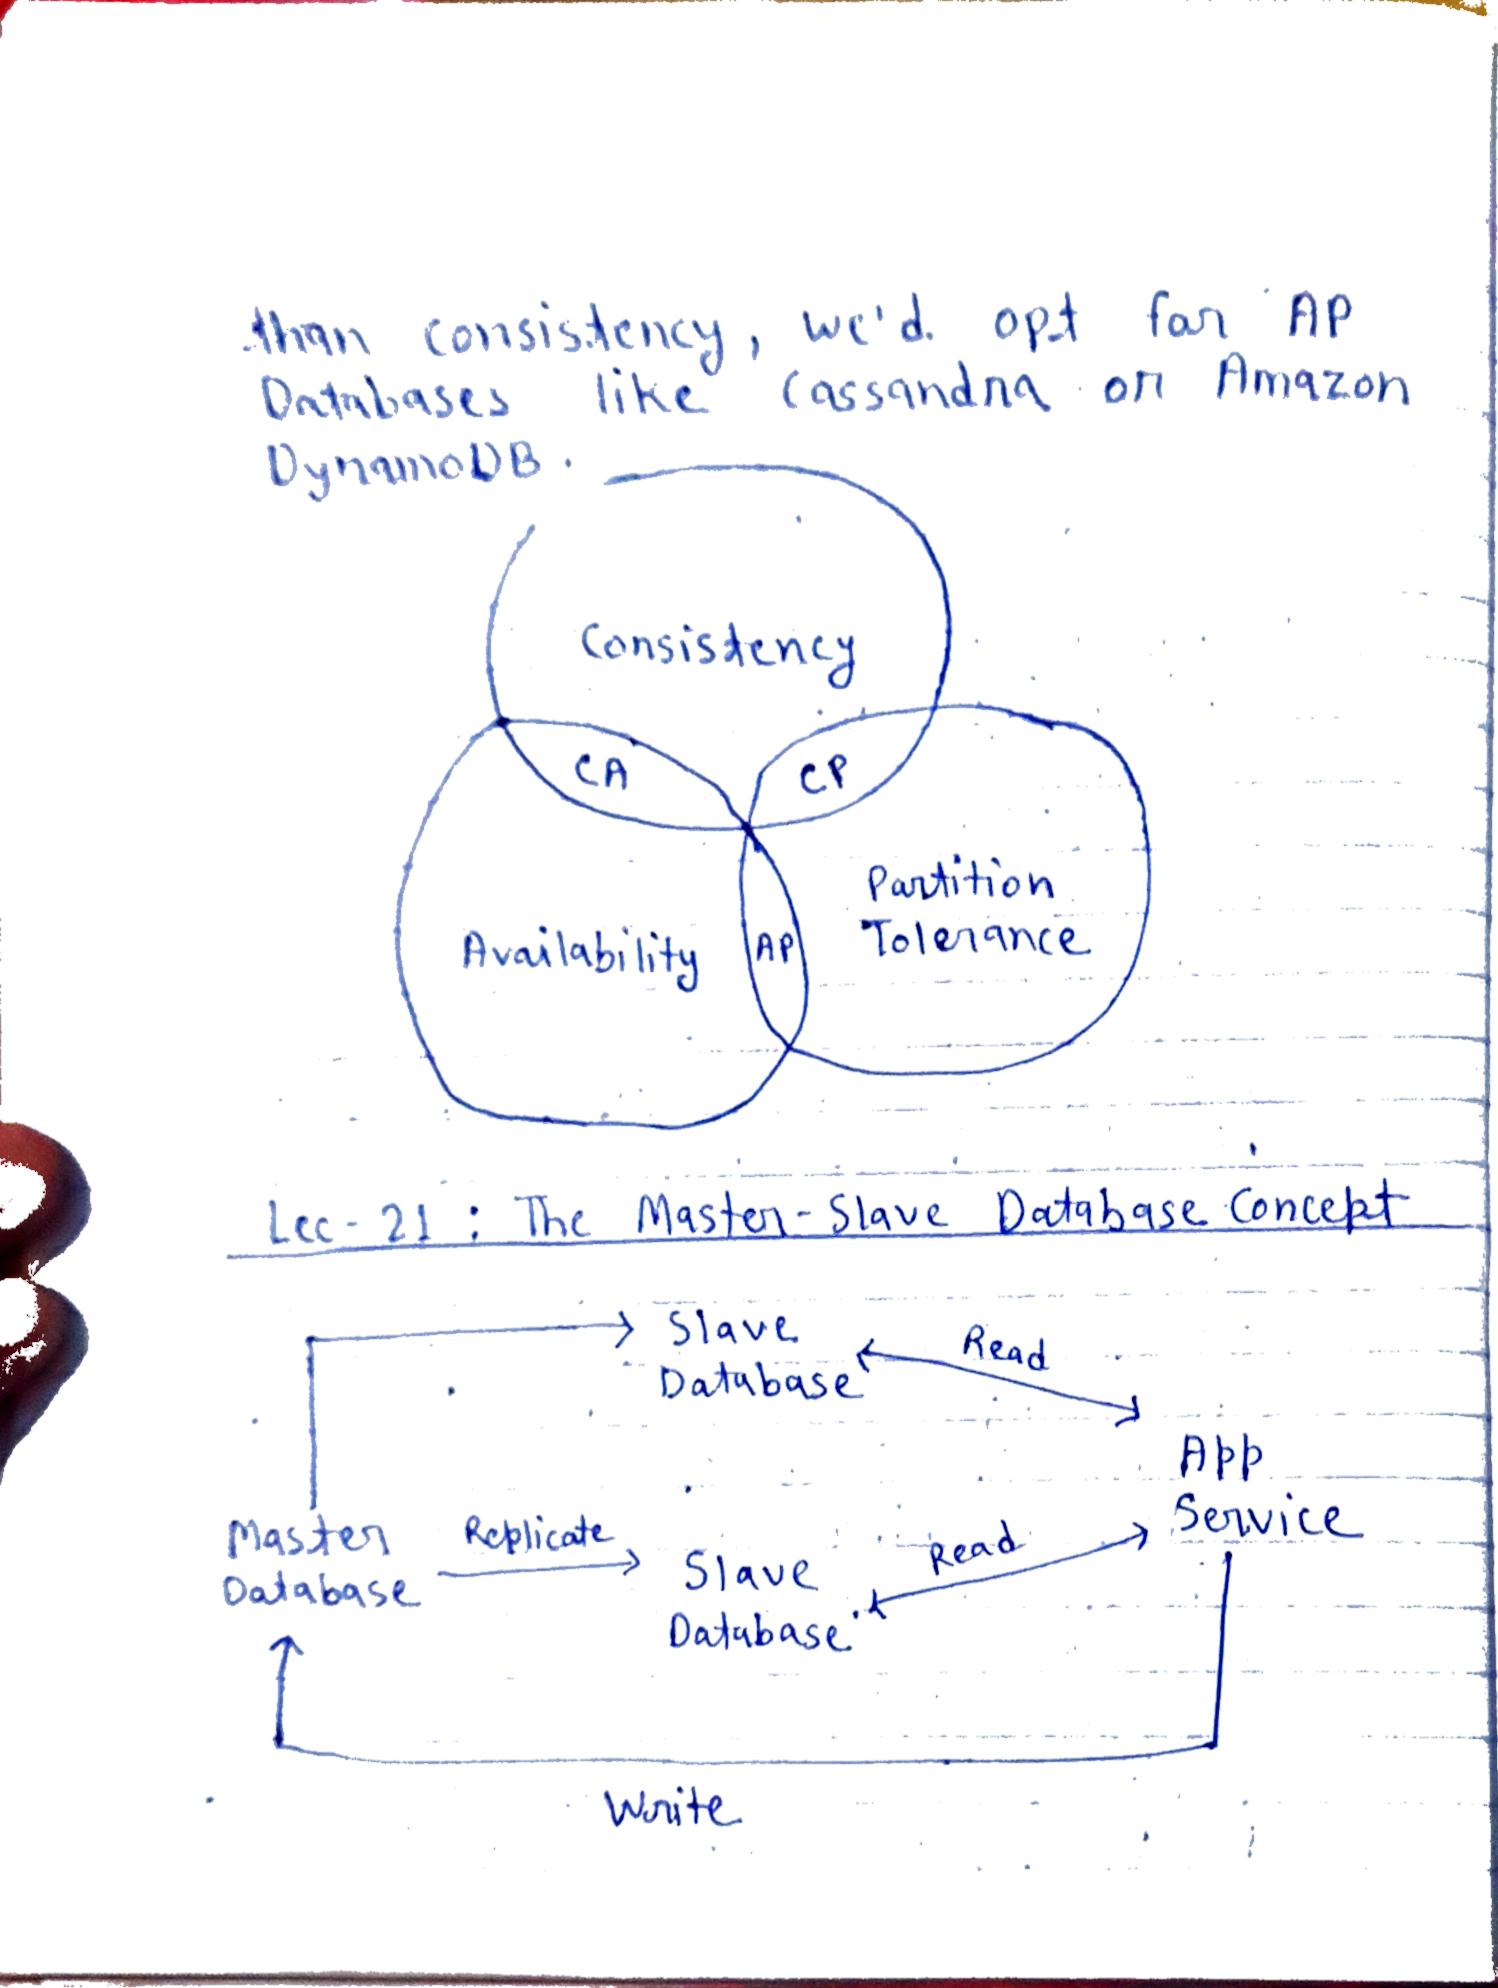 than consistency, we'd opt for AP
Databases like Cassandra or Amazon
DynamoDB.
Consistency
CA
CP
Partition
Tolerance
Availability
AP
Lec-21 : The Master-Slave Database Concept
Slave
Database
Read
App
Service
Master
Database
Replicate
Slave
Database
Read
Write